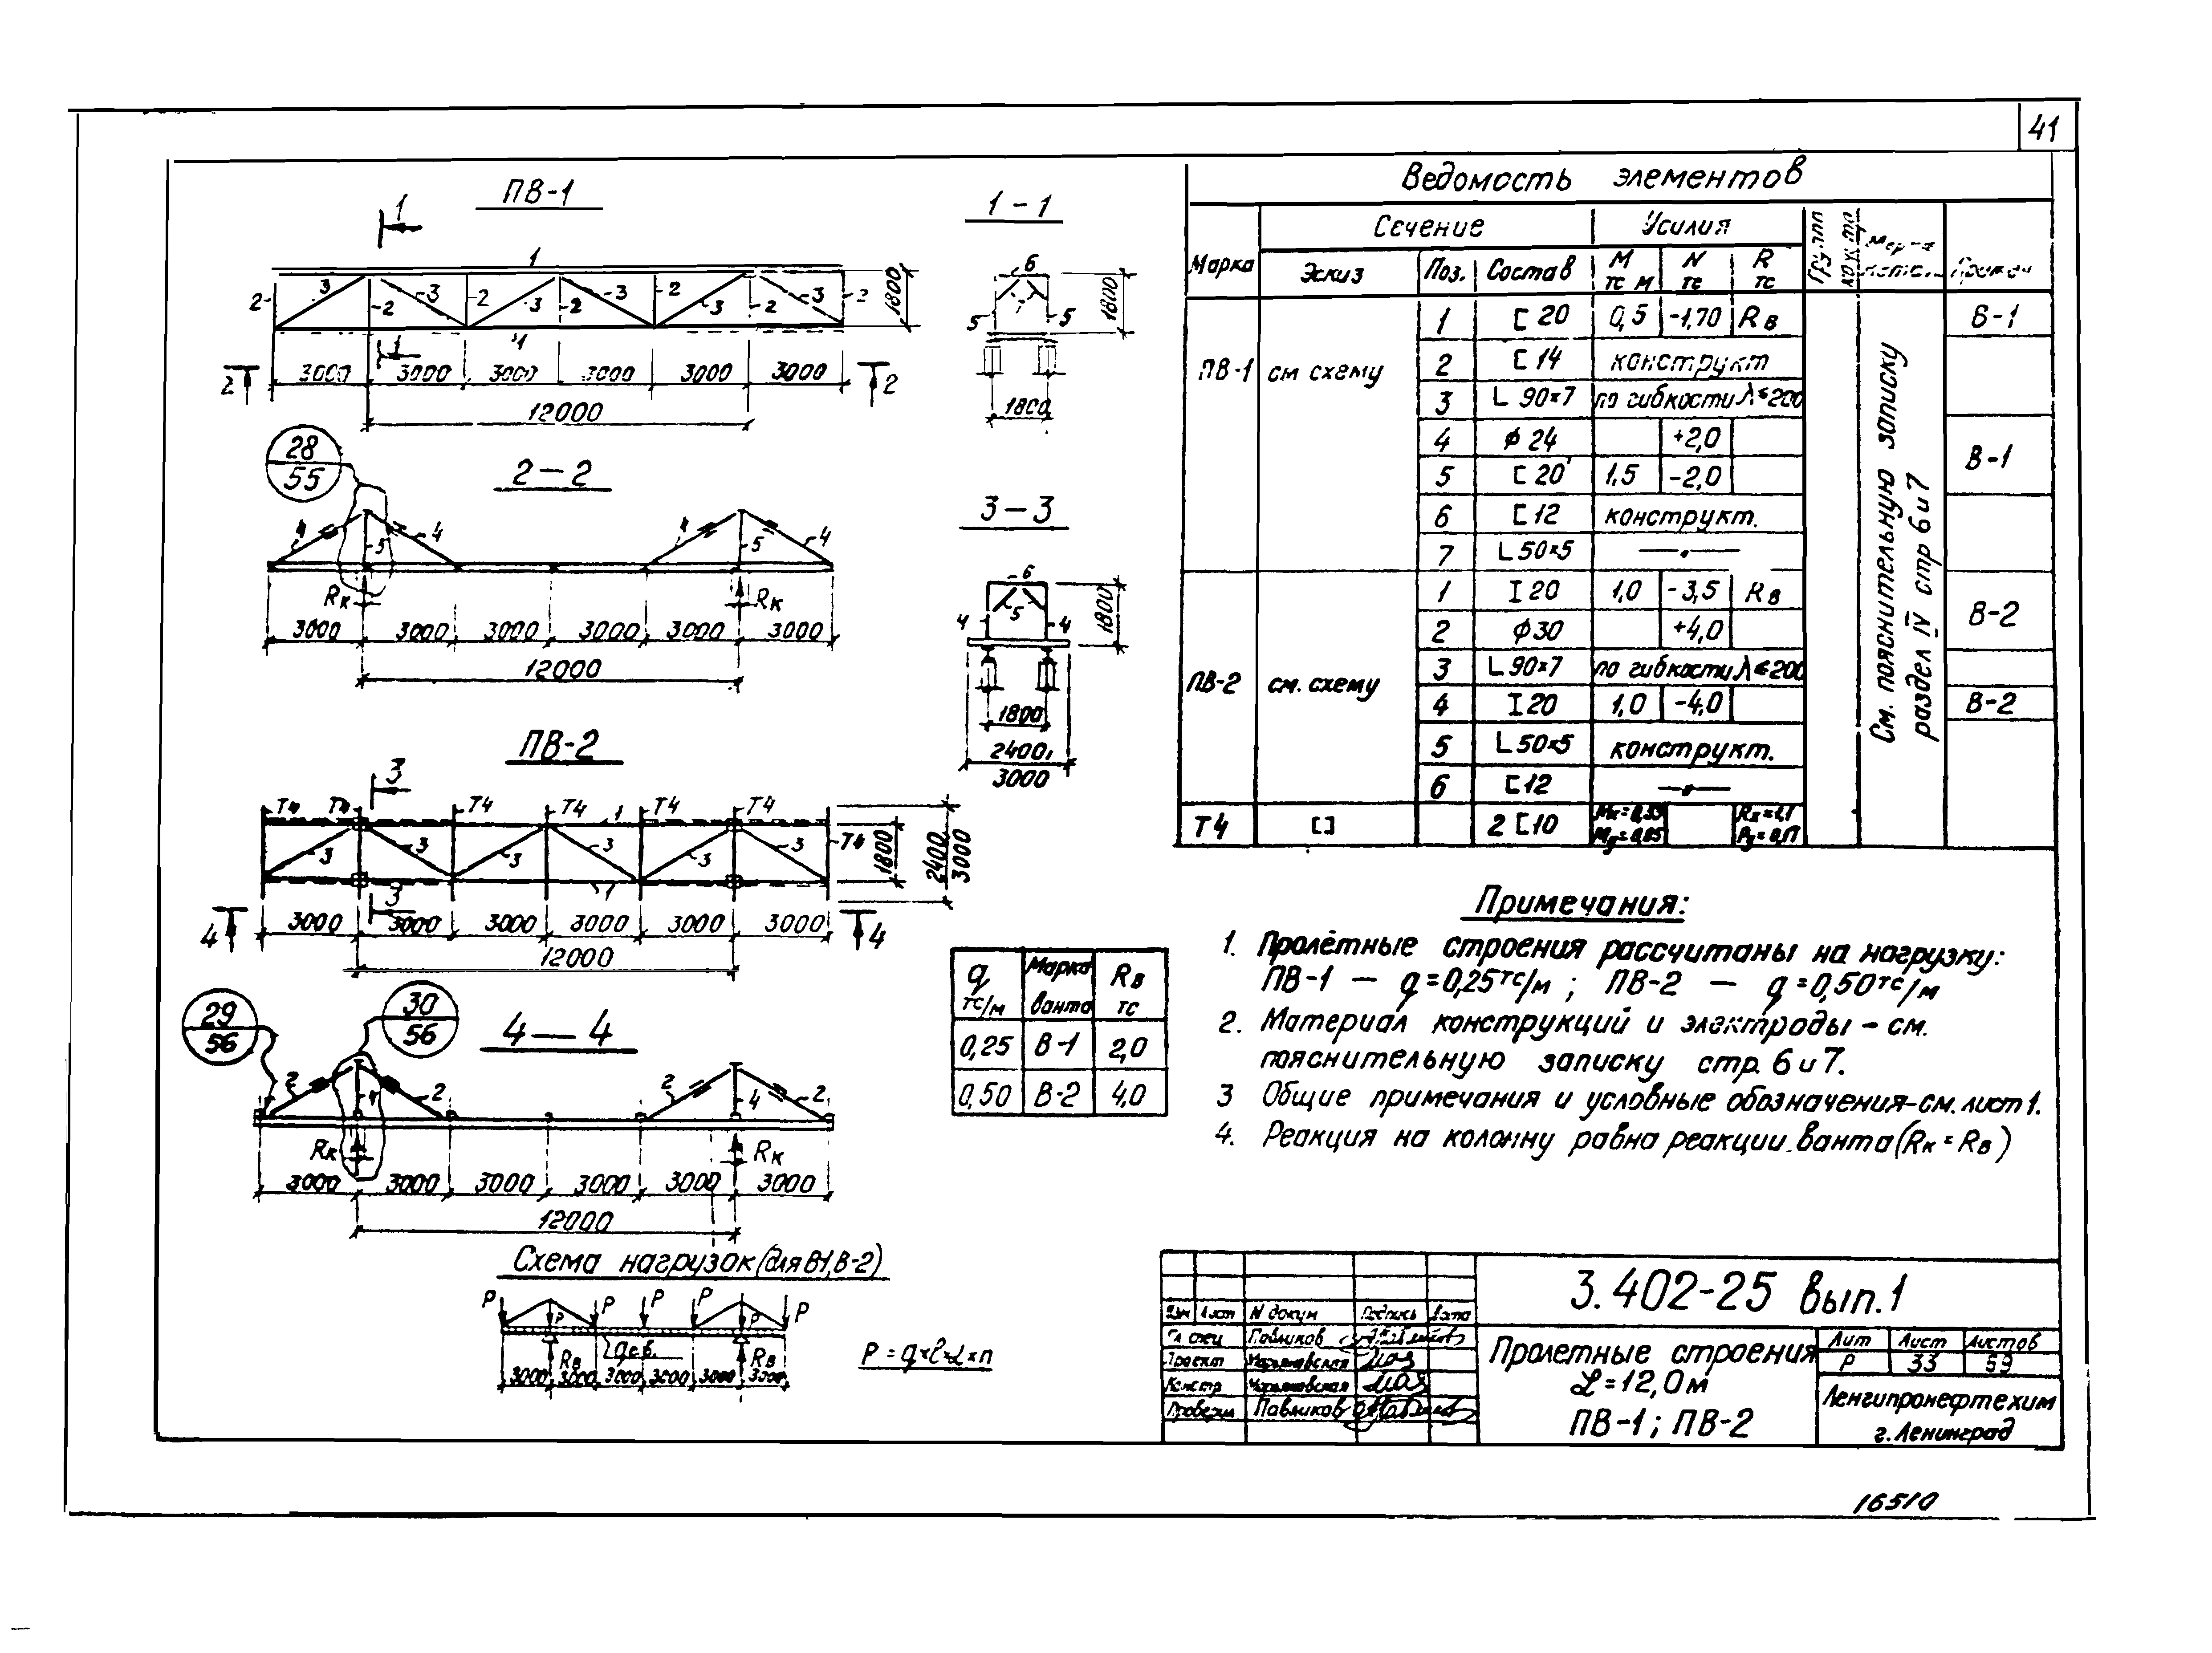 41
ПВ-1
1
1
2 3 2 3 2 3 2 3 2 3 2 3 2
1800
1
1
3000 3000 3000 3000 3000 3000
2 2
12000
1-1
6
5 5
1800
1800
28
55
2-2
4 5 4 4 5 4
Rк Rк
3000 3000 3000 3000 3000 3000
12000
3-3
6
4 5 4
1800
1800
2400
3000
ПВ-2
3
Т4 Т4 Т4 Т4 1 Т4 Т4
3 3 3 3 3 3 Т4
1800
2400
3000
3 1
3000 3000 3000 3000 3000 3000
4 4
12000
29
56
30
56
4-4
2 4 2 2 4 2
Rк Rк
3000 3000 3000 3000 3000 3000
12000
Схема нагрузок (для В1, В-2)
P P P P P P P
qс.в.
Rв Rв
3000 3000 3000 3000 3000 3000
P = q×ℓ×α×n
q тс/м Марка ванта Rв тс
0,25 В-1 2,0
0,50 В-2 4,0
Ведомость элементов
Марка Сечение Усилия
Эскиз Поз. Состав М тс м N тс R тс
ПВ-1 см схему
1 [ 20 0,5 -1,70 Rв В-1
2 [ 14 конструкт
3 L 90×7 по гибкости λ≤200
4 ϕ 24 +2,0 В-1
5 [ 20 1,5 -2,0
6 [ 12 конструкт.
7 L 50×5 —〃—
ПВ-2 см. схему
1 I 20 1,0 -3,5 Rв В-2
2 ϕ30 +4,0
3 L 90×7 по гибкости λ≤200
4 I 20 1,0 -4,0 В-2
5 L 50×5 конструкт.
6 [ 12 —〃—
Т4 [] 2 [ 10
См. пояснительную записку
раздел IV стр 6 и 7
Примечания:
1. Пролётные строения рассчитаны на нагрузку:
ПВ-1 — q=0,25тс/м ; ПВ-2 — q=0,50тс/м
2. Материал конструкций и электроды - см.
пояснительную записку стр. 6 и 7.
3 Общие примечания и условные обозначения-см. лист 1.
4. Реакция на колонну равна реакции ванта (Rк = Rв)
3.402-25 вып.1
Изм Лист N докум Подпись Дата
Гл спец Павликов
Проект
Констр
Проверил Павликов
Пролетные строения
L=12,0м
ПВ-1; ПВ-2
Лит Лист Листов
Р 33 59
Ленгипронефтехим
г. Ленинград
16510